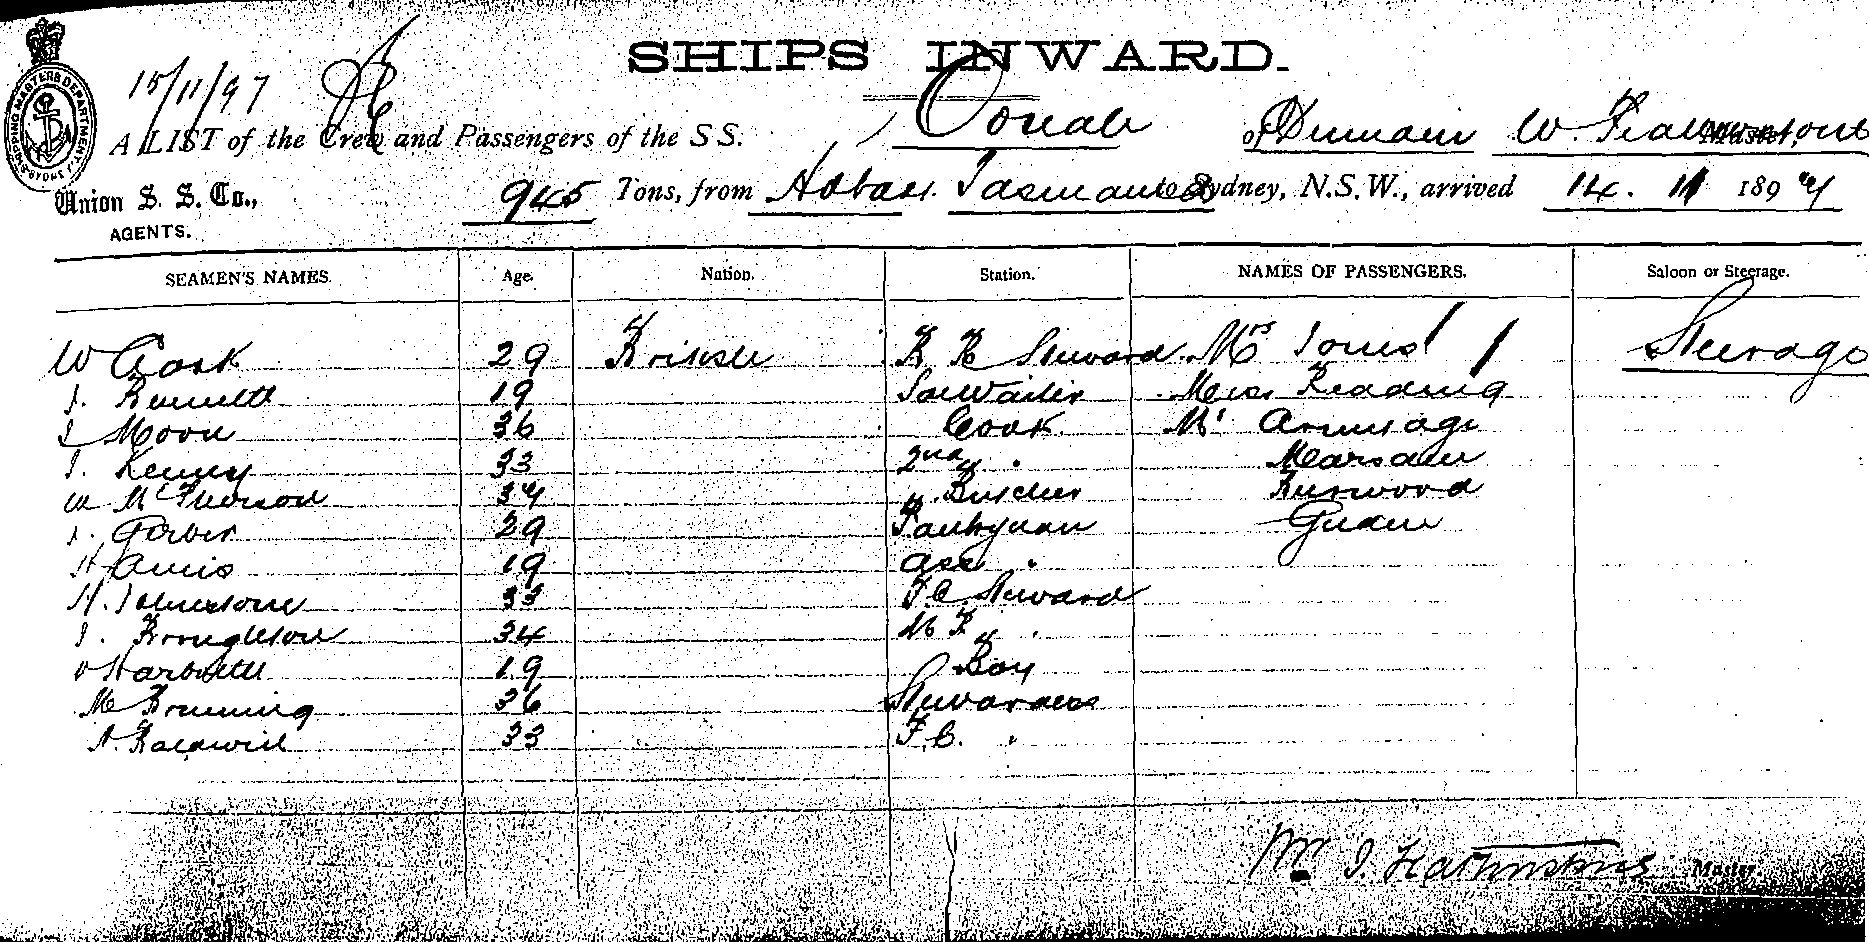 SHIPS INWARD.
15/11/97
SHIPPING MASTERS DEPARTMENT SYDNEY
A LIST of the Crew and Passengers of the SS. Oonah of Dunedin W. Featherstone Master,
Union S. S. Co., AGENTS. 945 Tons, from Hobart Tasmania to Sydney, N.S.W., arrived 14. 11 1897
SEAMEN'S NAMES. Age. Nation. Station. NAMES OF PASSENGERS. Saloon or Steerage.
W Cook 29 British Steward Mrs Jones Steerage
J. Bennett 19 Miss Reading
J Moore 36 Cook Mr Armitage
J. Kenny 33 2nd "
W McPherson 37 " Butcher Burwood
J. 29 Pantryman
H Amis 19 Ass "
H. Johnstone 33 F.C. Steward
J. Broughton 34 "
Harbottle 19 Boy
M Browning 36 Stewardess
A. Baldwin 33 F.C. "
Wm J. Featherstone Master.